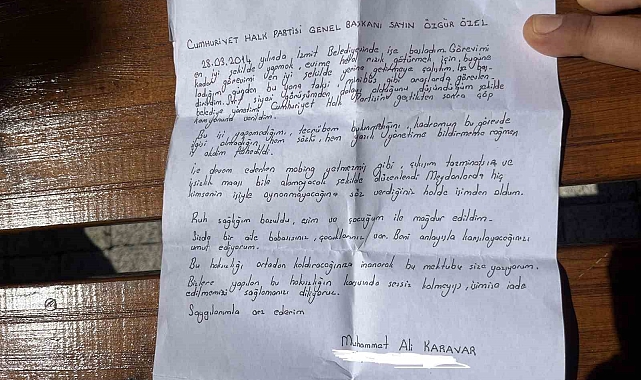 CUMHURİYET HALK PARTİSİ GENEL BAŞKANI SAYIN ÖZGÜR ÖZEL
28.03.2014 yılında İzmit Belediyesinde işe başladım. Görevimi
en iyi şekilde yapmak, evime helal rızık götürmek için, bugüne
kadar görevimi en iyi şekilde yerine getirmeye çalıştım. İşe baş-
ladığım günden bu yana taksi, minibüs gibi araçlarda görevlen-
dirildim. Sırf siyasi görüşümden dolayı olduğunu düşündüğüm şekilde
belediye yönetimi Cumhuriyet Halk Partisine geçtikten sonra çöp
kamyonuna verildim.
Bu işi yapamadığımı, tecrübem bulunmadığını, kadromun bu görevde
olmadığını hem sözlü, hem yazılı yönetime bildirmeme rağmen
iş akdim feshedildi.
İşe devam ederken mobing yetmezmiş gibi, çıkışım tazminatsız ve
işsizlik maaşı bile alamayacak şekilde düzenlendi. Meydanlarda hiç
kimsenin işiyle oynanmayacağına söz verdiğiniz halde işimden oldum.
Ruh sağlığım bozuldu, eşim ve çocuğum ile mağdur edildim.
Sizde bir aile babasısınız, çocuklarınız var. Beni anlayışla karşılayacağınızı
umut ediyorum.
Bu haksızlığı ortadan kaldıracağınıza inanarak bu mektubu size yazıyorum.
Bizlere yapılan bu haksızlığın konusunda sessiz kalmayıp, işimize iade
edilmemizi sağlamanızı diliyoruz.
Saygılarımla arz ederim
Muhammat Ali KARAVAR